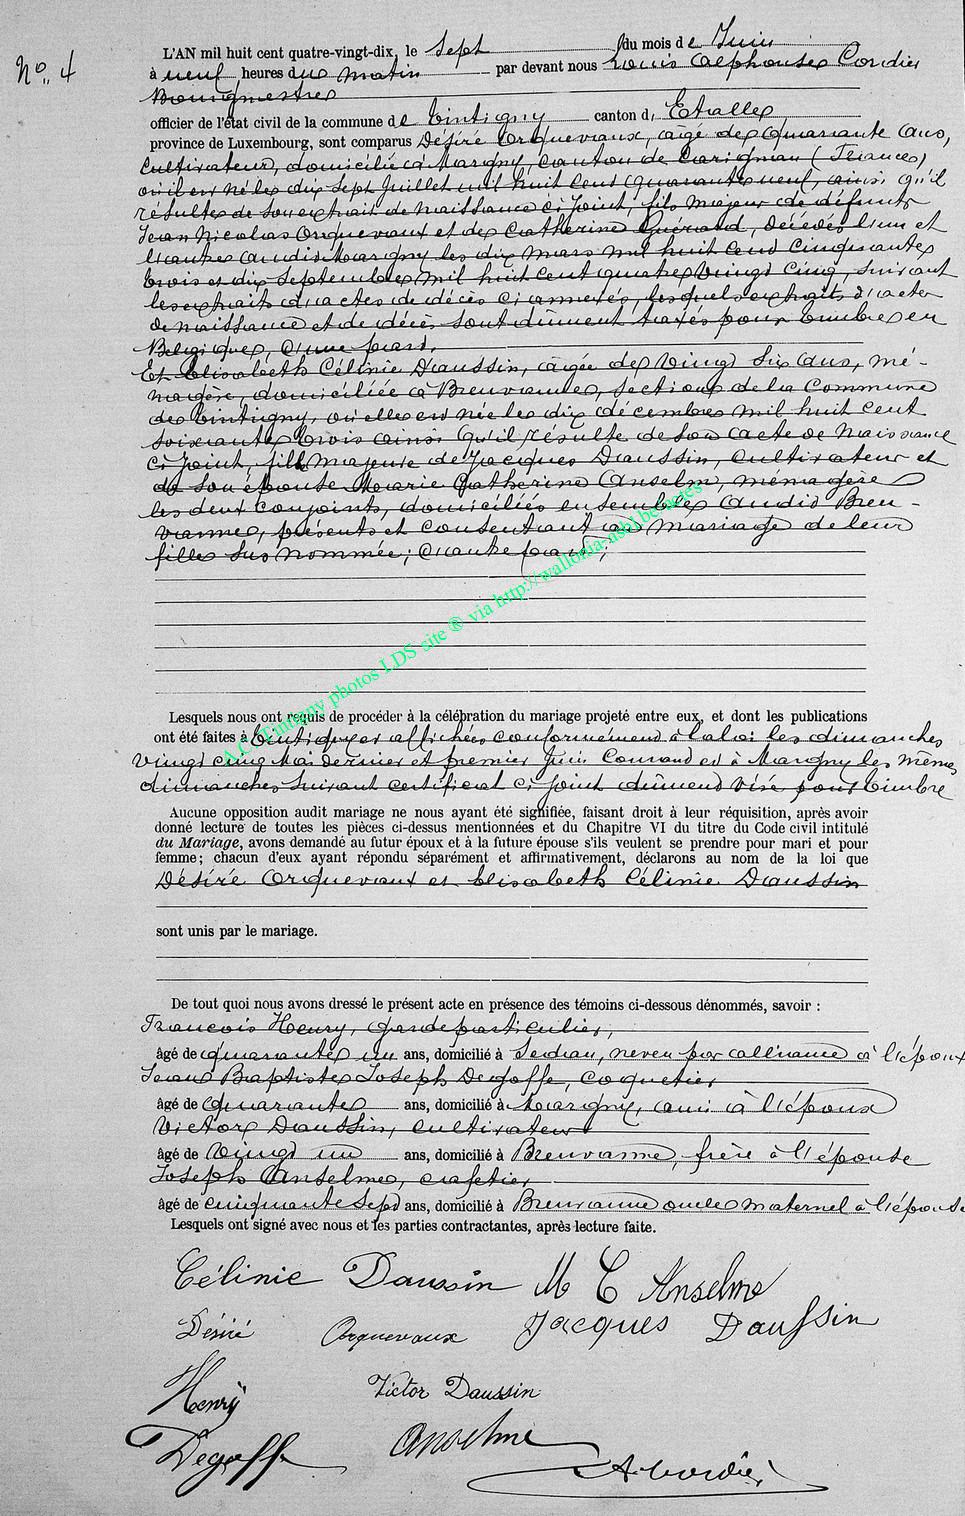 No. 4
L'AN mil huit cent quatre-vingt-dix, le Sept du mois de Juin
à neuf heures du matin par devant nous Louis Alphonse Cordier
Bourgmestre
officier de l'état civil de la commune de Tintigny canton d' Etalle
province de Luxembourg, sont comparus Désiré Orquevaux, âgé de Quarante Ans,
Cultivateur, domicilié à Margny, Canton de Carignan (France)
où il est né le dix Sept Juillet mil huit Cent Quarante neuf, ainsi qu'il
résulte de son extrait de Naissance ci joint, fils majeur de défunts
Jean Nicolas Orquevaux et de Catherine Guérard, décédés l'un et
l'autre audit Margny les dix Mars mil huit Cent Cinquante
trois et dix Septembre mil huit Cent quatre Vingt Cinq, suivant
les extraits d'actes de décès ci annexés, lesquels extraits d'actes
de naissance et de décès sont dûment taxés pour timbre en
Belgique, d'une part.
Et Elisabeth Célinie Daussin, âgée de Vingt Six Ans, mé-
nagère, domiciliée à Breuvanne, Section de la Commune
de Tintigny, où elle est née le dix décembre mil huit cent
soixante trois ainsi qu'il résulte de son acte de Naissance
ci joint, fille majeure de Jacques Daussin, Cultivateur et
de son épouse Marie Catherine Anselm, ménagère
les deux conjoints, domiciliés ensemble audit Breu-
vanne, présents et consentant au mariage de leur
fille sus nommée; d'autre part;
A.C. Tintigny photos LDS site ® via http://wallonia-asbl.be/actes
Lesquels nous ont requis de procéder à la célébration du mariage projeté entre eux, et dont les publications
ont été faites à Tintigny et affichées conformément à la loi les dimanches
Vingt cinq Mai dernier et premier Juin Courant et à Margny les mêmes
dimanches suivant certificat ci joint dûment visé pour timbre
Aucune opposition audit mariage ne nous ayant été signifiée, faisant droit à leur réquisition, après avoir
donné lecture de toutes les pièces ci-dessus mentionnées et du Chapitre VI du titre du Code civil intitulé
du Mariage, avons demandé au futur époux et à la future épouse s'ils veulent se prendre pour mari et pour
femme; chacun d'eux ayant répondu séparément et affirmativement, déclarons au nom de la loi que
Désiré Orquevaux et Elisabeth Célinie Daussin
sont unis par le mariage.
De tout quoi nous avons dressé le présent acte en présence des témoins ci-dessous dénommés, savoir :
Francois Henry, garde particulier,
âgé de quarante un ans, domicilié à Sedan, neveu par alliance à l'époux
Jean Baptiste Joseph Degoffe, Coquetier
âgé de Quarante ans, domicilié à Margny, ami à l'époux
Victor Daussin, cultivateur
âgé de Vingt un ans, domicilié à Breuvanne, frère à l'épouse
Joseph Anselme, cafetier
âgé de cinquante Sept ans, domicilié à Breuvanne oncle maternel à l'épouse
Lesquels ont signé avec nous et les parties contractantes, après lecture faite.
Célinie Daussin M C Anselme
Désiré Orquevaux Jacques Daussin
Henry Victor Daussin
Degoffe Anselme
A. Cordier